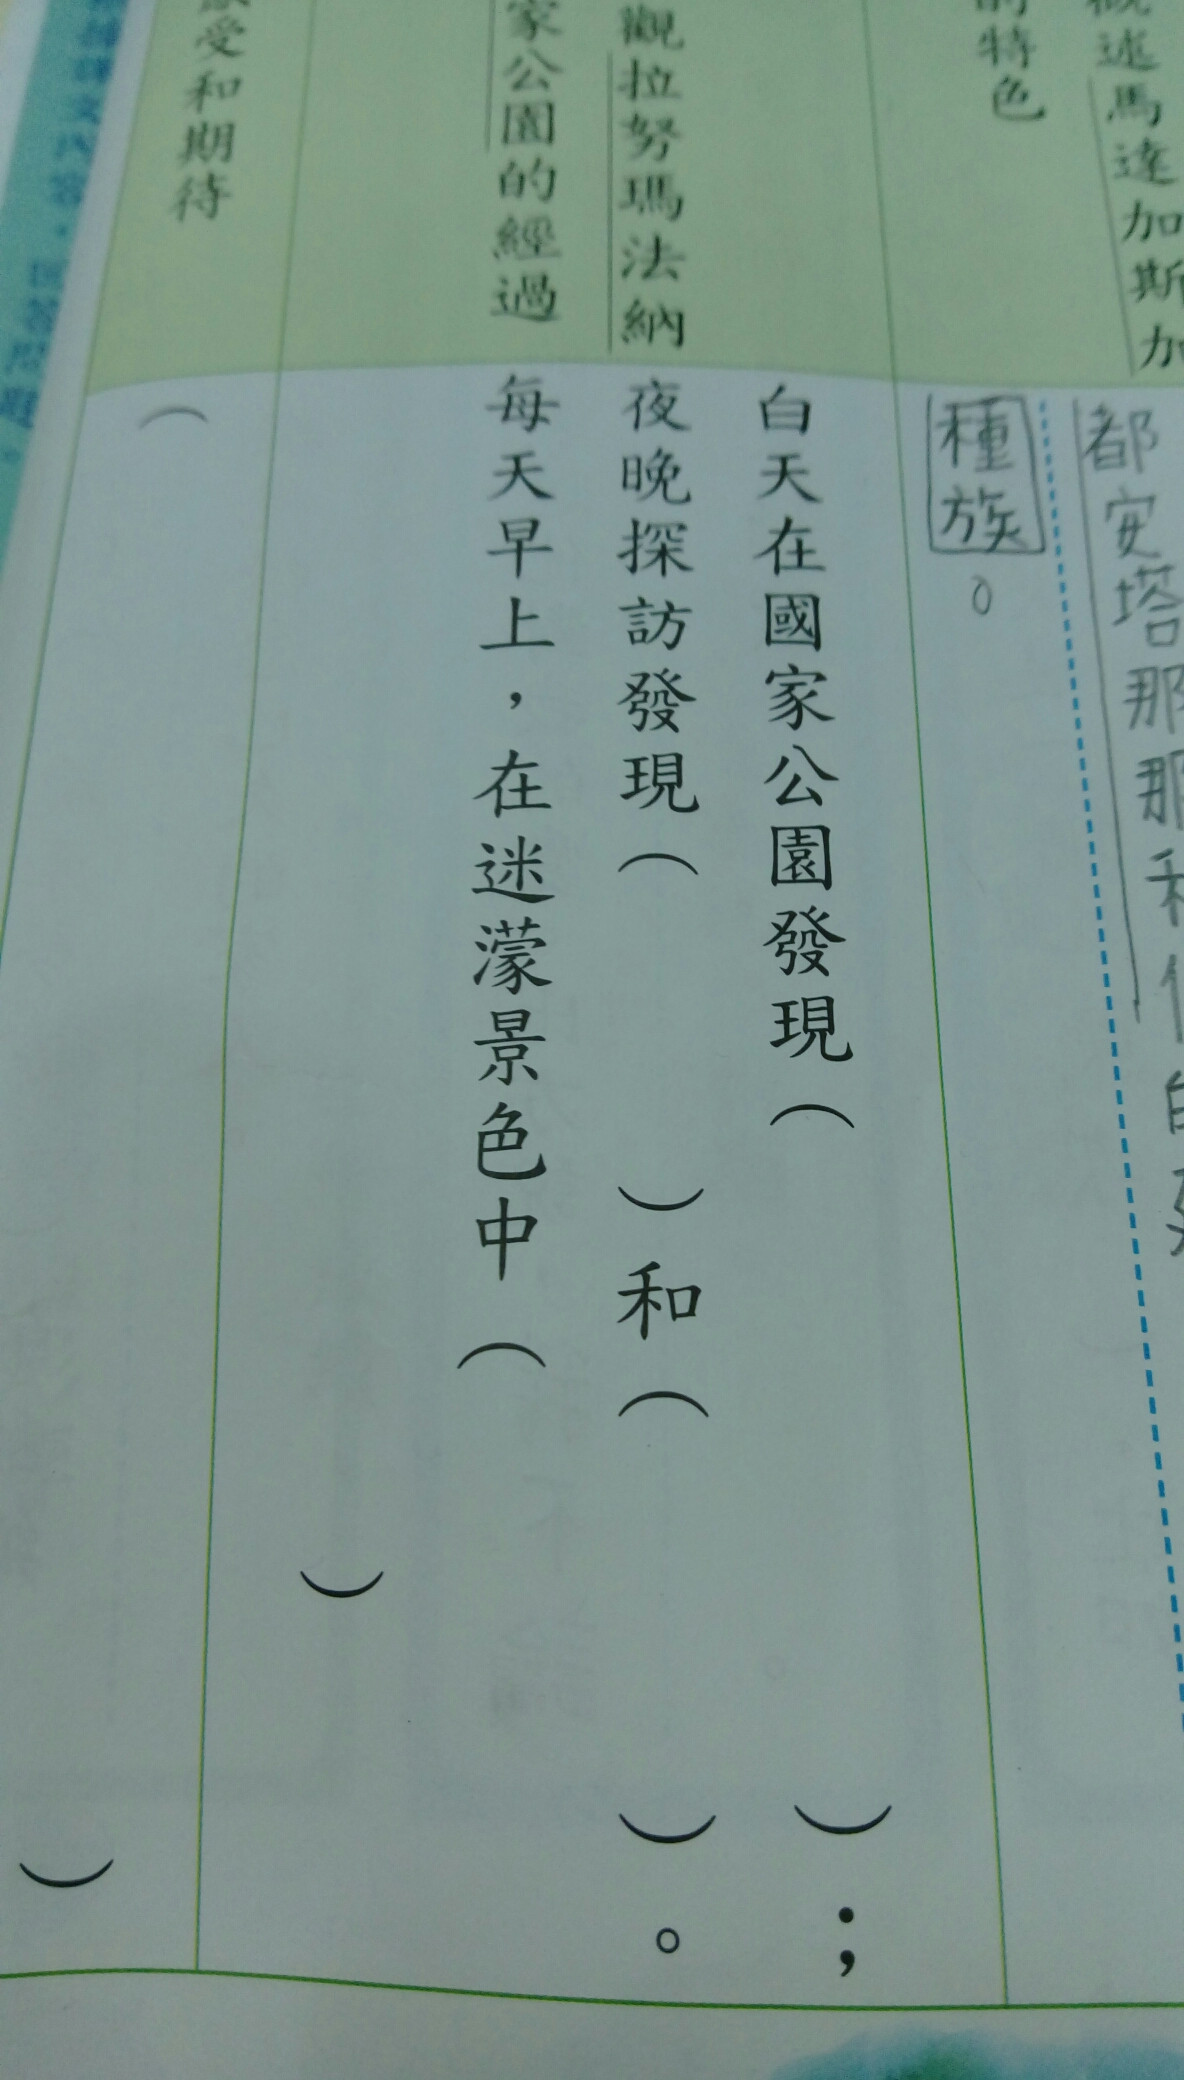 概述馬達加斯加
的特色
都安塔那那利佛的建
種族。
觀拉努瑪法納
家公園的經過
白天在國家公園發現（　　）；
夜晚探訪發現（　　）和（　　）。
每天早上，在迷濛景色中（
）
感受和期待
（　　）
課文內容，回答問題。